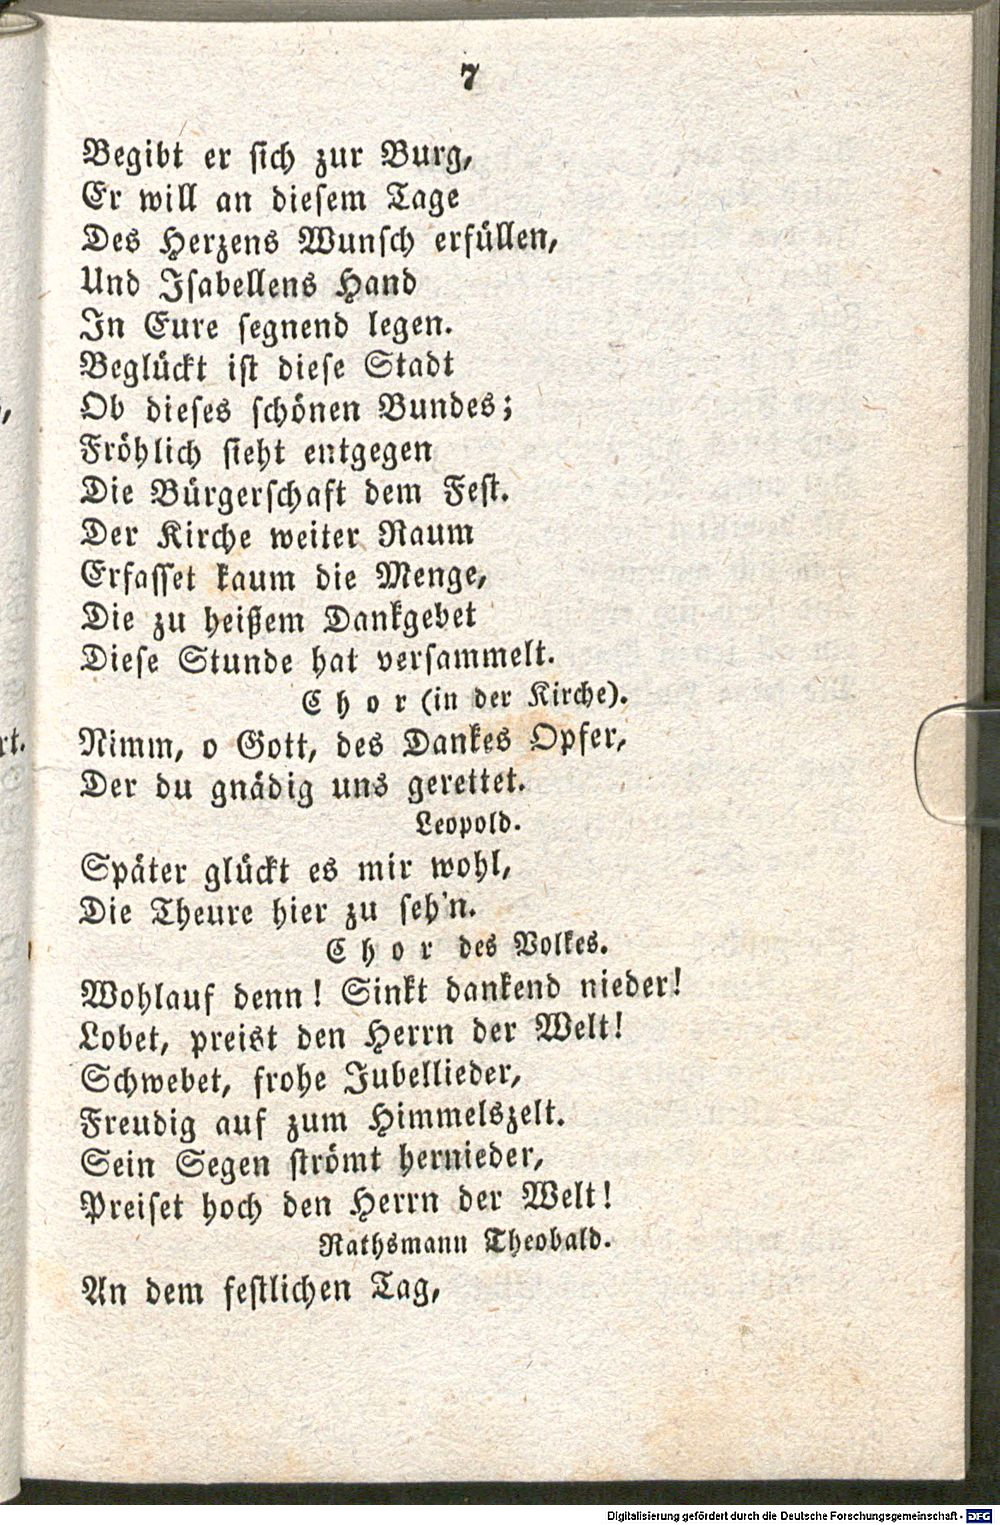 7
Begibt er sich zur Burg,
Er will an diesem Tage
Des Herzens Wunsch erfüllen,
Und Isabellens Hand
In Eure segnend legen.
Beglückt ist diese Stadt
Ob dieses schönen Bundes;
Fröhlich sieht entgegen
Die Bürgerschaft dem Fest.
Der Kirche weiter Raum
Erfasset kaum die Menge,
Die zu heißem Dankgebet
Diese Stunde hat versammelt.
Chor (in der Kirche).
Nimm, o Gott, des Dankes Opfer,
Der du gnädig uns gerettet.
Leopold.
Später glückt es mir wohl,
Die Theure hier zu seh'n.
Chor des Volkes.
Wohlauf denn! Sinkt dankend nieder!
Lobet, preist den Herrn der Welt!
Schwebet, frohe Jubellieder,
Freudig auf zum Himmelszelt.
Sein Segen strömt hernieder,
Preiset hoch den Herrn der Welt!
Rathsmann Theobald.
An dem festlichen Tag,
Digitalisierung gefördert durch die Deutsche Forschungsgemeinschaft - DFG